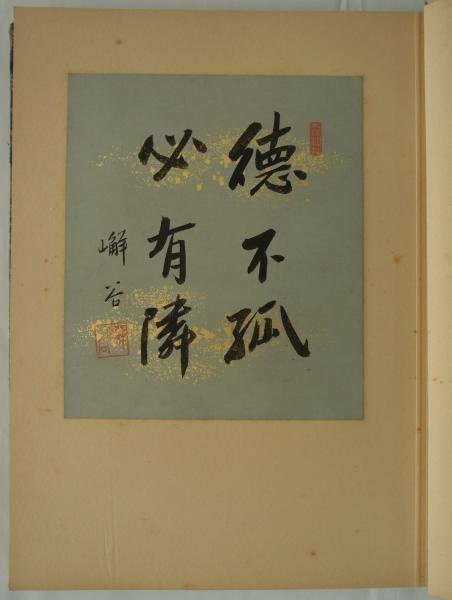 德不孤
必有隣
嶰谷